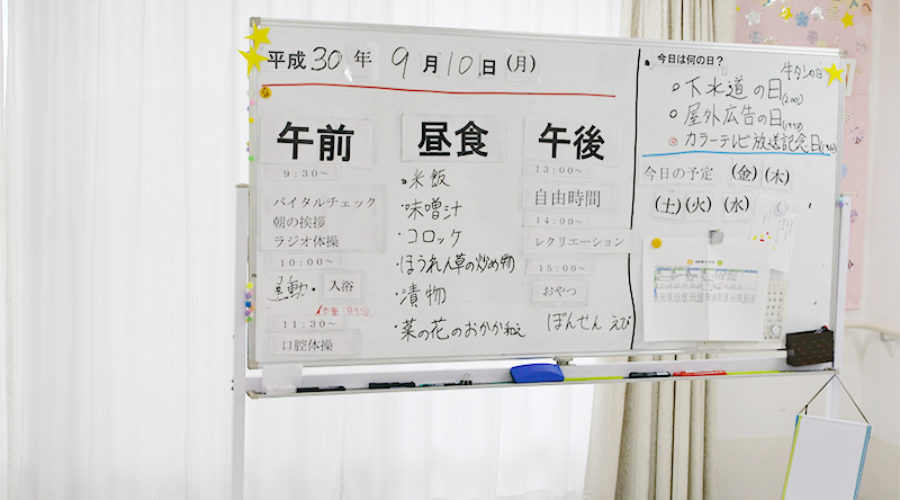 平成30年 9月10日(月)
午前
9:30~
バイタルチェック
朝の挨拶
ラジオ体操
10:00~
運動・入浴
11:30~
口腔体操
昼食
•米飯
・味噌汁
・コロッケ
・ほうれん草の炒め物
・漬物
・菜の花のおかか和え
午後
13:00~
自由時間
14:00~
レクリエーション
15:00~
おやつ
ぽんせん えび
•今日は何の日?
牛タンの日
○下水道の日(2001)
○屋外広告の日(1973)
◎カラーテレビ放送記念日
今日の予定 (金)(木)
(土)(火) (水)